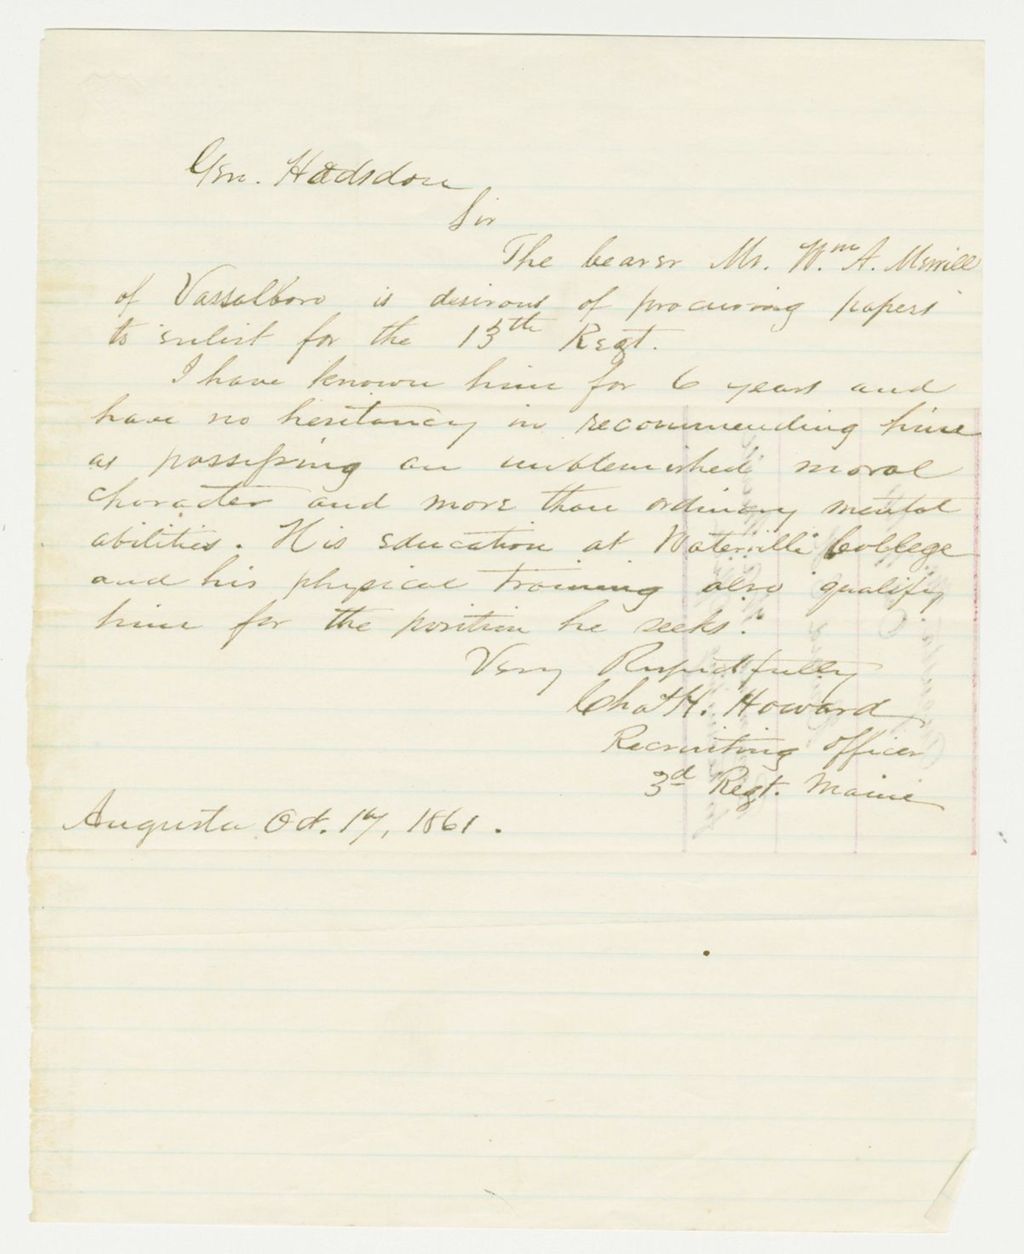 Gen. Hodsdon
Sir
The bearer Mr. Wm A. Merrill
of Vassalboro is desirous of procuring papers
to enlist for the 13th Regt.
I have known him for 6 years and
have no hesitancy in recommending him
as possessing an unblemished moral
character and more than ordinary mental
abilities. His education at Waterville College
and his physical training also qualify
him for the position he seeks.
Very Respectfully
Chas H. Howard
Recruiting Officer
3d Regt. Maine
Augusta Oct. 17, 1861.